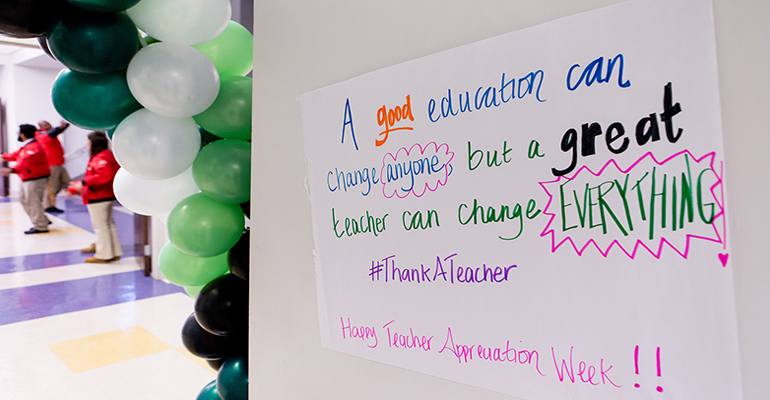 A good education can
change anyone, but a great
teacher can change EVERYTHING
#ThankATeacher
Happy Teacher Appreciation Week!!